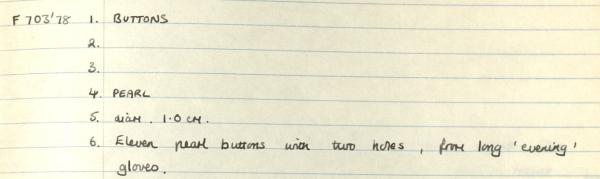 F 703'78 1. BUTTONS
2.
3.
4. PEARL
5. diam. 1.0 cm.
6. Eleven pearl buttons with two holes, from long 'evening'
gloves.